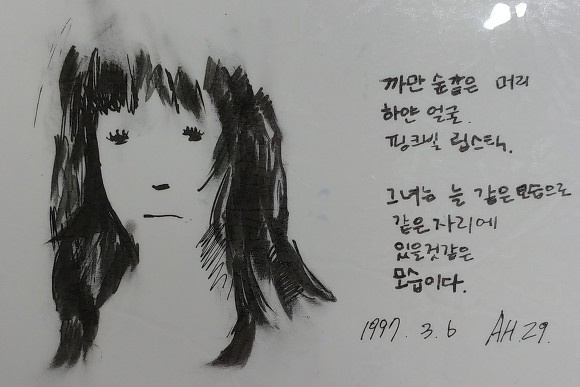 까만 숲같은 머리
하얀 얼굴.
핑크빛 립스틱.
그녀는 늘 같은 모습으로
같은 자리에
있을것같은
모습이다.
1997. 3. 6 AH.29.